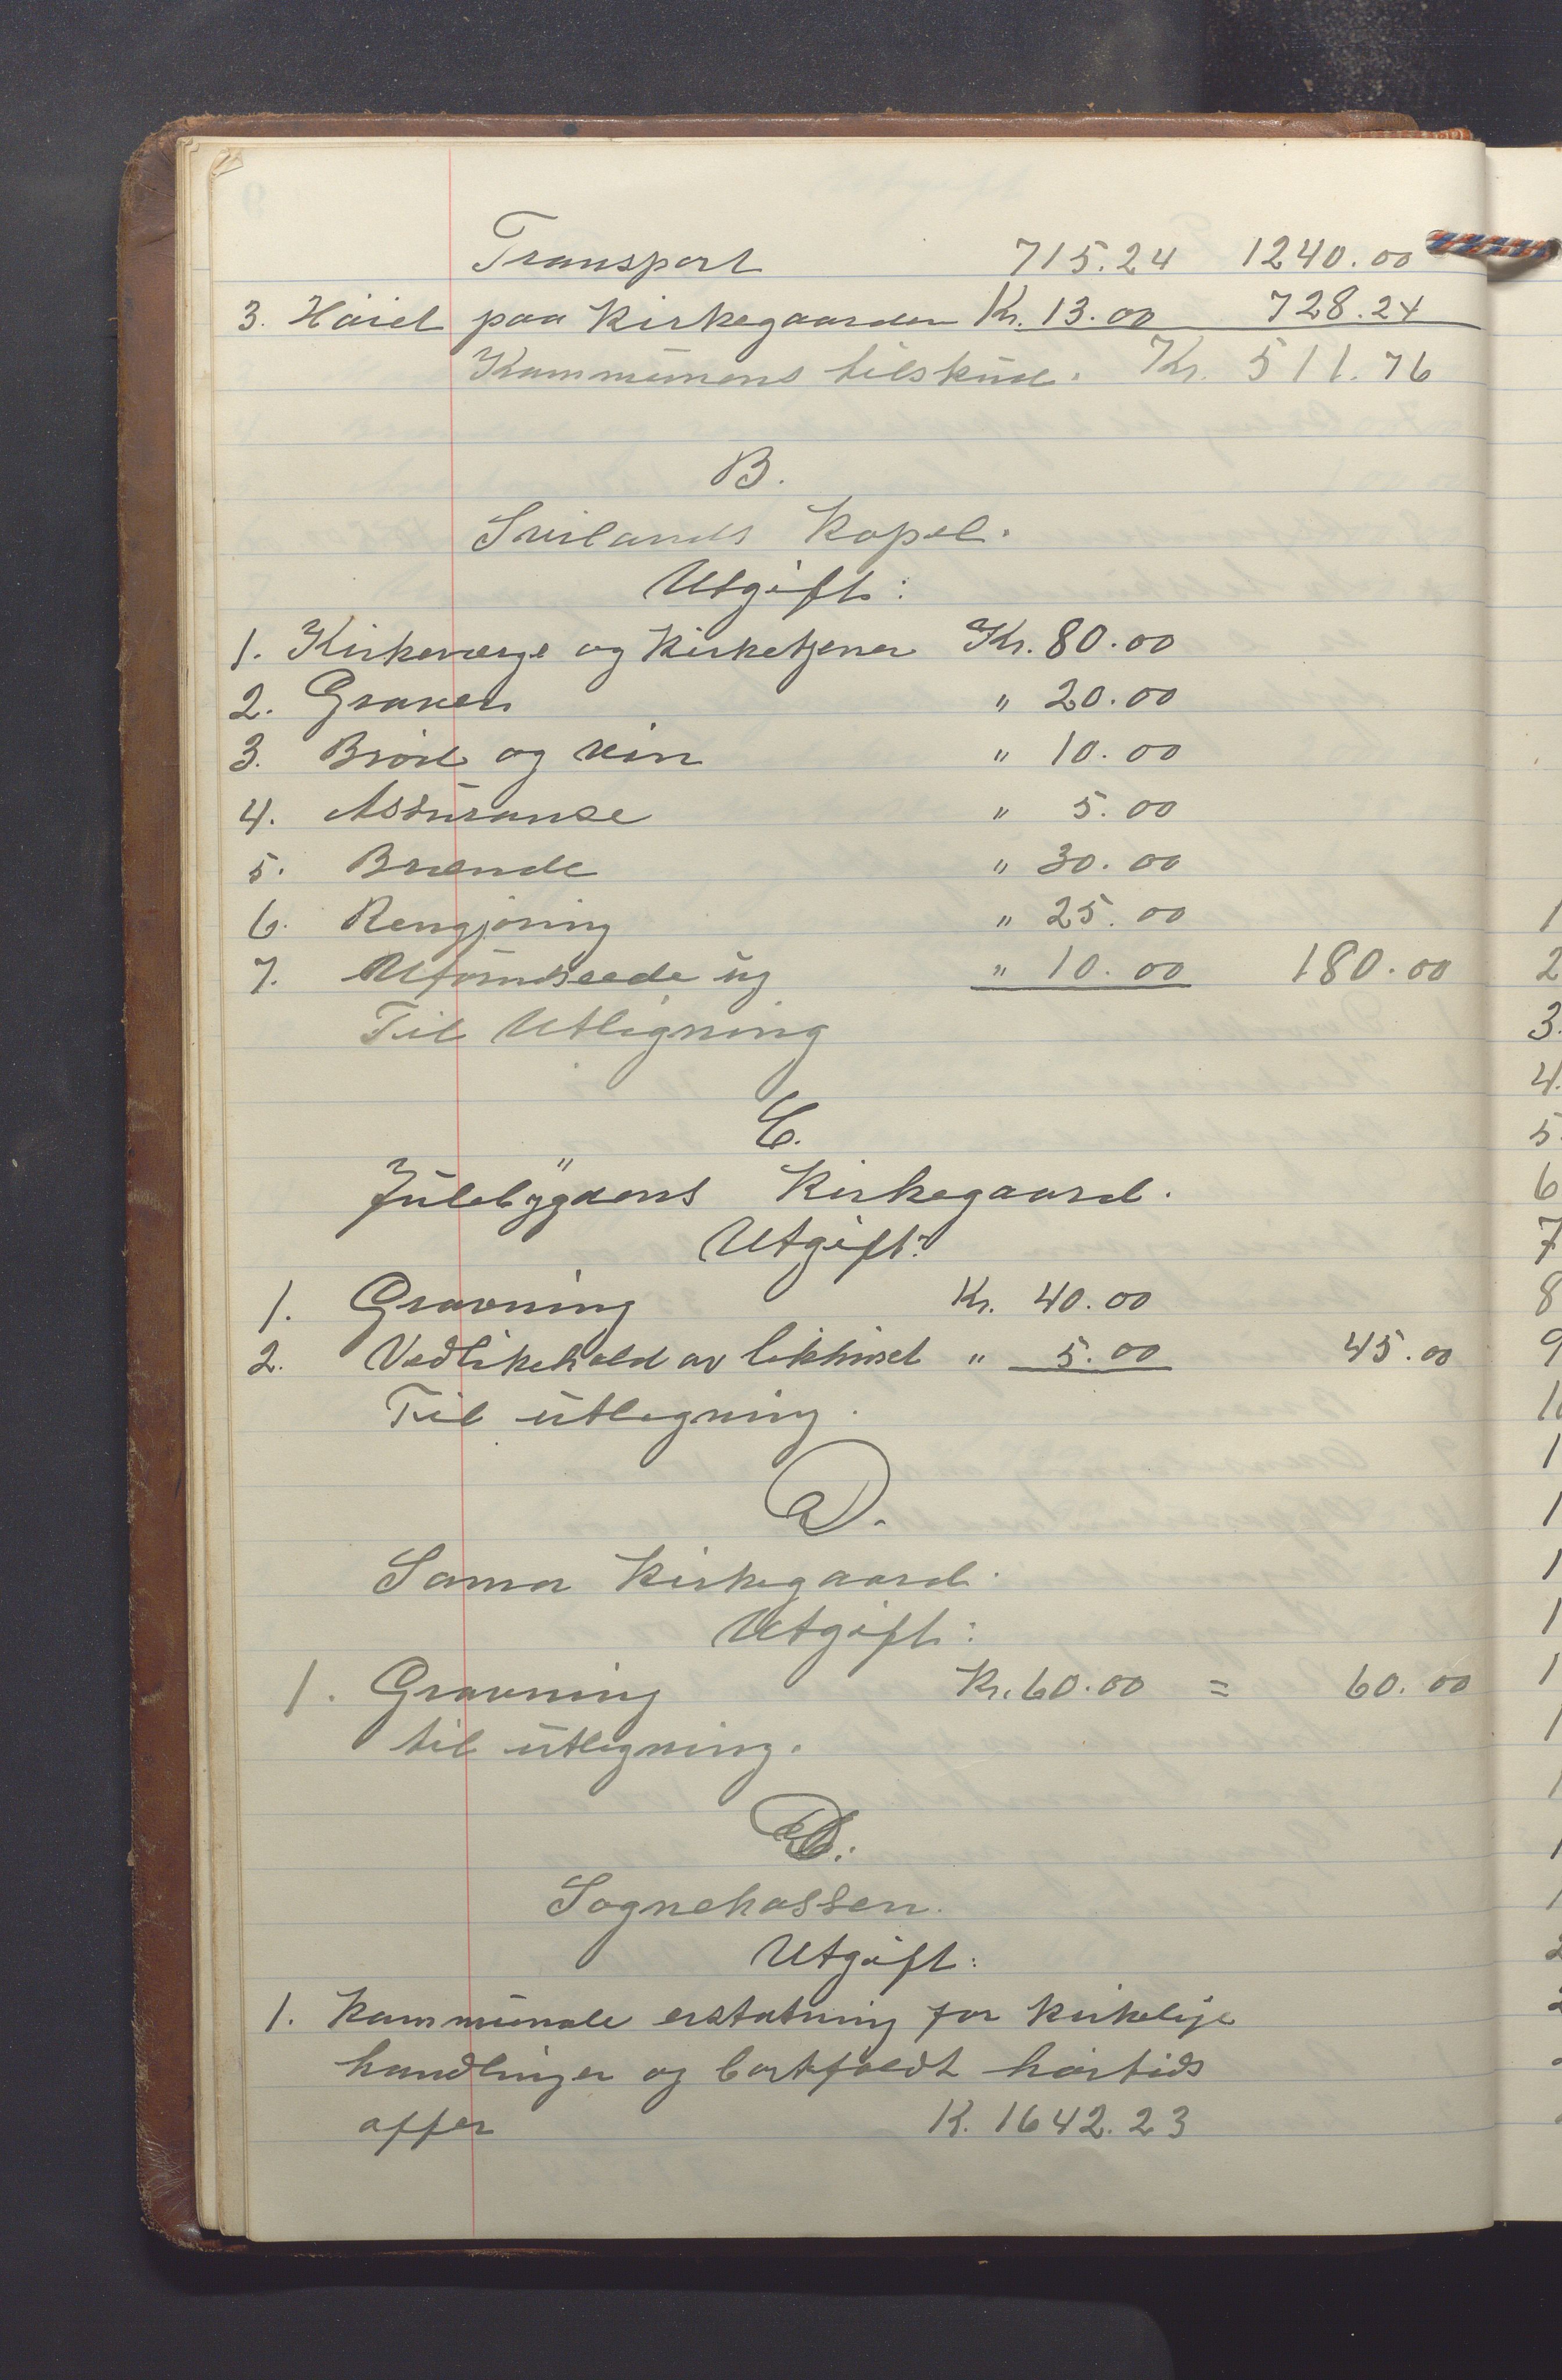 Transport 715.24 1240.00
3. Höiet paa Kirkegaarden Kr. 13.00 728.24
Kommunens tilskud. Kr. 511.76
B.
Sviland's Kapel.
Utgift:
1. Kirkeværge og Kirketjener Kr. 80.00
2. Graver " 20.00
3. Bröd og Vin " 10.00
4. Assuranse " 5.00
5. Brænde " 30.00
6. Rengjöring " 25.00
7. Uforutseede ug " 10.00 180.00
Til Utligning
C.
Julebygdens Kirkegaard.
Utgift:
1. Gravning Kr. 40.00
2. Vedlikehold av likhuset " 5.00 45.00
Til utligning.
D.
Soma Kirkegaard.
Utgift:
1. Gravning Kr. 60.00 = 60.00
til utligning.
Sognekassen.
Utgift:
1. Kommunale erstatning for kirkelige
handlinger og bortfaldt höitids
offer K. 1642.23
1
2
3.
4.
5.
6
7
8
9